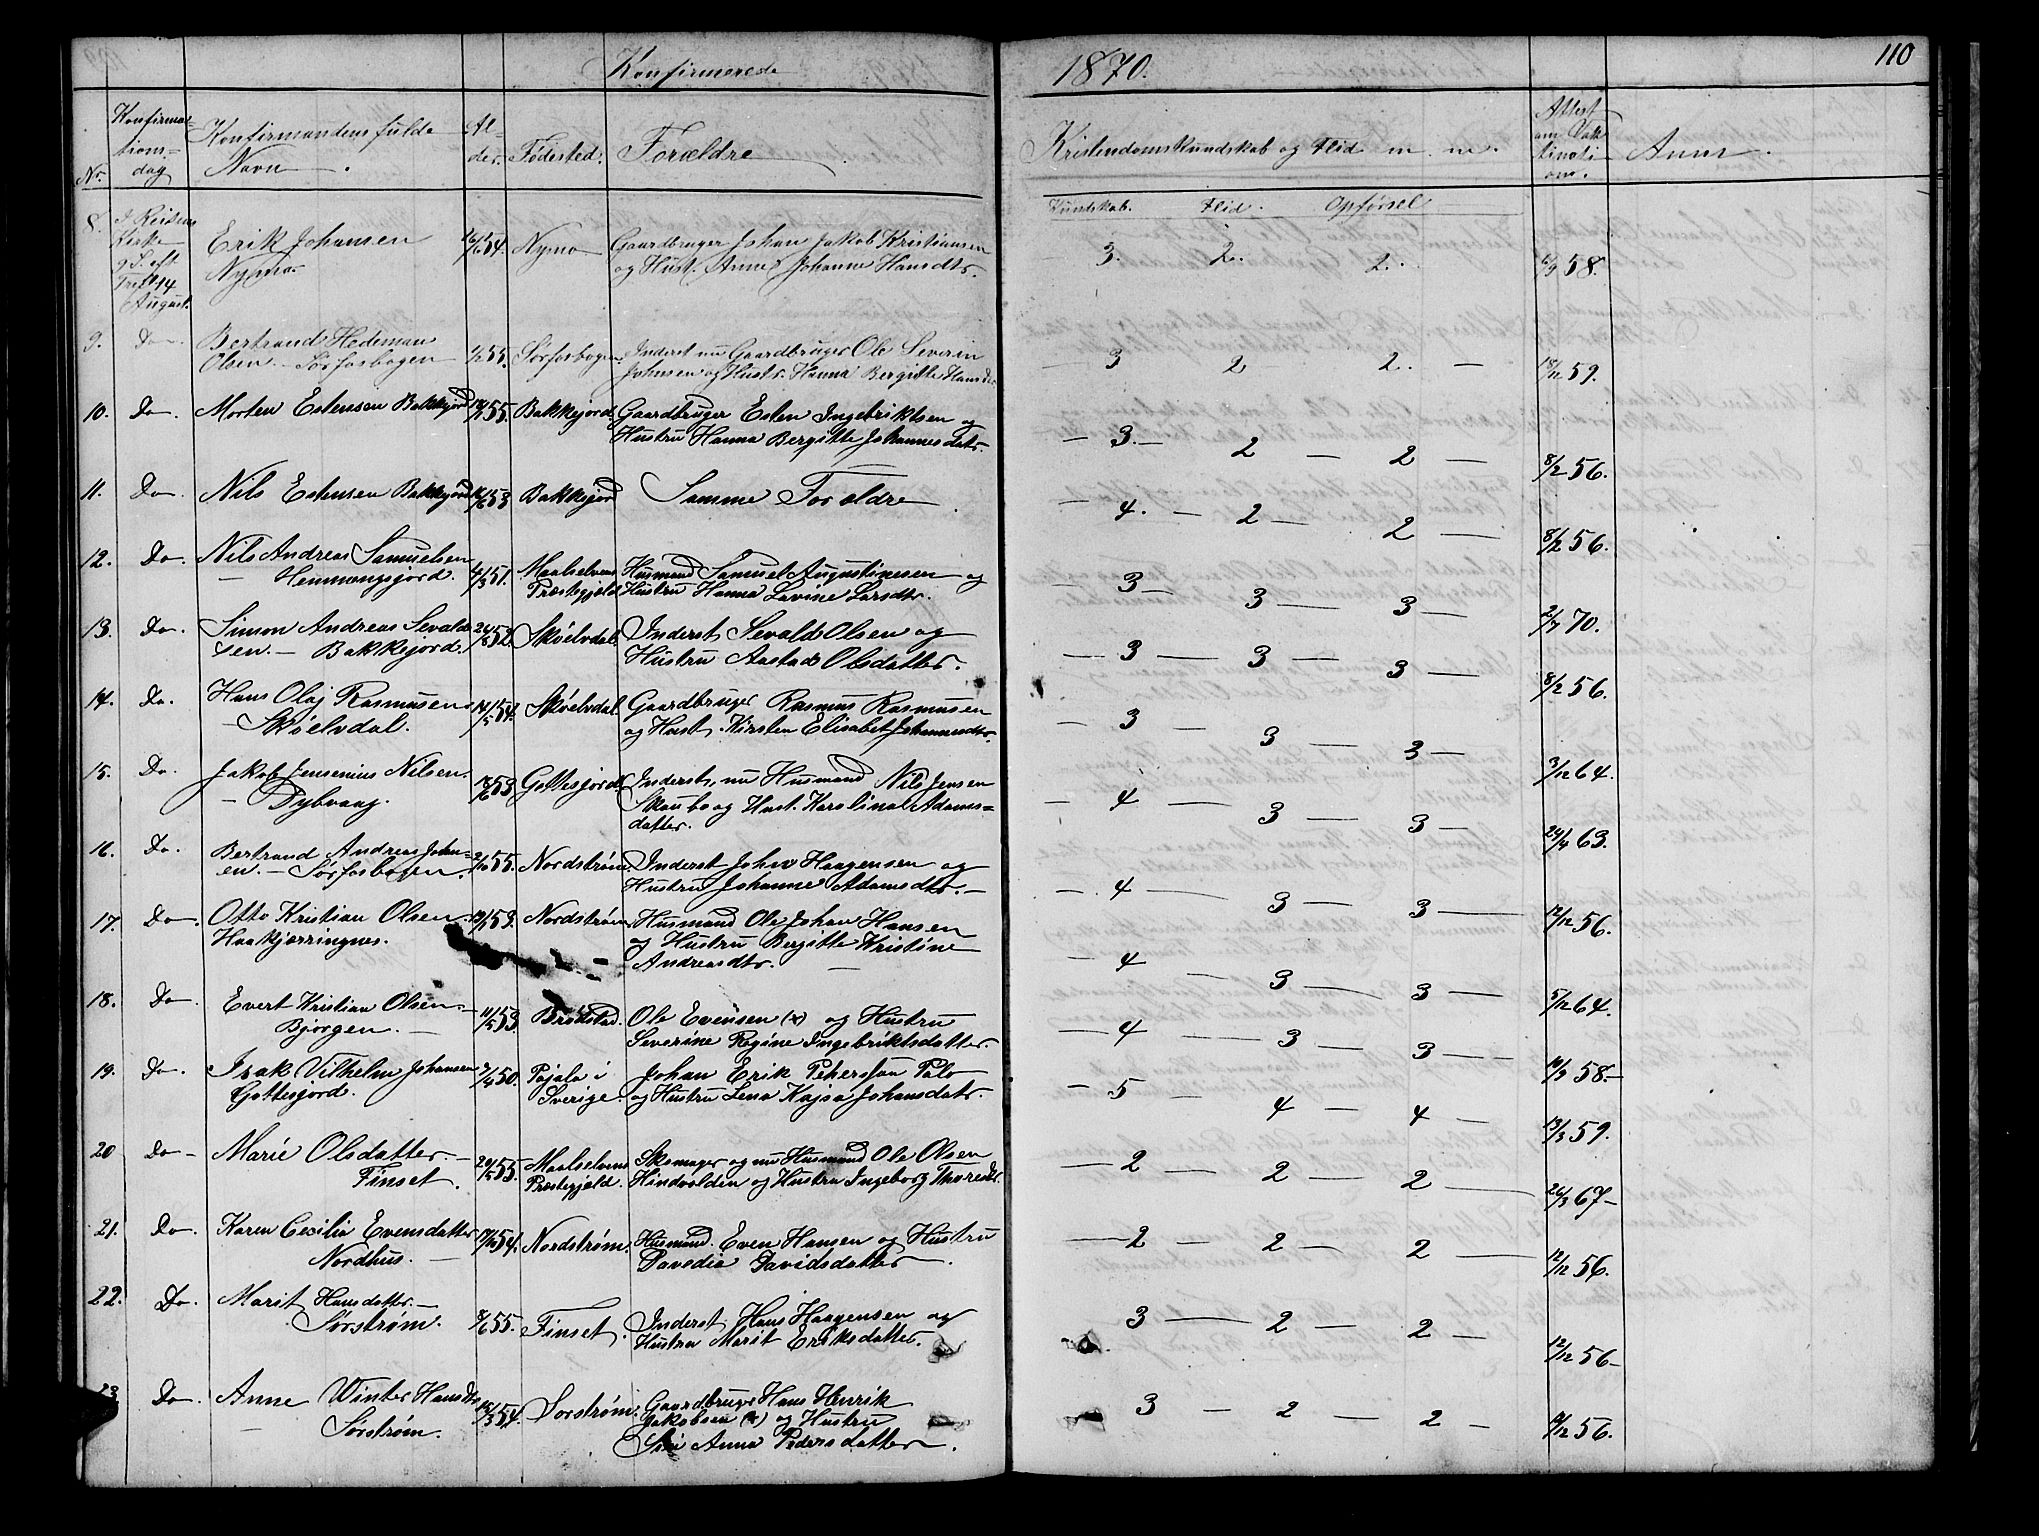 Konfirmerede
1870.
110
Nr.
Konfirma-
tions-
dag
Konfirmandens fulde
Navn
Al-
der.
Fødested.
Forældre
Kristendomskundskab og Flid m. m.
Attest
om Vak
sinati
on.
Anm.
Kundskab. Flid. Opførsel
8. I Reisens
Kirke
9 S. eft
Tref. 14
August.
Erik Johansen
Nymo
Nymo
Gaardbruger Johan Jakob Kristiansen
og Hust. Anne Johanne Hansdtr.
3. 2. 2. 6/9 58.
9. Do
Bertrand Hedeman
Olsen. Sørfosbogen
1/2 55. Sørfosbogen
Inderst nu Gaardbruger Ole Severin
Johnsen og Hustr. Hanna Bergitte Hansdtr
3 2 2. 18/12 59.
10. Do. Morten Estensen Bakkejord 55. Bakkejord
Gaardbruger Esten Ingebriktsen og
Hustru Hanna Bergitte Johannesdatr.
3 2 2 8/2 56.
11. Do Nils Estensen Bakkejord 53 Bakkejord Samme Forældre
4. 2 2 8/2 56.
12. Do. Nils Andreas Samuelsen
Hemmingsjord.
4/3 51. Maalselvens
Præstegjæld
Husmand Samuel Augustinusen og
Hustru Hanna Lovine Larsdtr.
3 3 3 2/7 70.
13. Do. Simon Andreas Sevald-
sen. Bakkejord.
24/8 52. Skøelvdal
Inderst Sevald Olsen og
Hustru Aastad Olsdatter.
3 3 3 8/2 56.
14. Do. Hans Olaj Rasmusen
Skøelvdal.
14/5 54. Skøelvdal
Gaardbruger Rasmus Rasmusen
og Hust. Kirsten Elisabet Johannesdtr.
3 3 3 3/12 64.
15. Do. Jakob Jensenius Nilsen.
Dybvaag.
53 Gottesjord
Inderst, nu Husmand Nils Jensen
Skaubo og Hust. Karolina Adams-
datter.
4 3 3 29/4 63.
16. Do. Bertrand Andreas John-
en. Sørfosbogen.
55. Nordstrøm.
Inderst John Haagensen og
Hustru Johanne Adamsdtr.
4 3 3 12/12 56.
17. Do Otto Kristian Olsen.
Haakjærringnes.
53. Nordstrøm
Husmand Ole Johan Hansen
og Hustru Bergitte Kristine
Andreasdtr.
4 3 3 5/12 64.
18. Do. Evert Kristian Olsen.
Bjorgen.
11/5 53 Brøstad.
Ole Evensen (x) og Hustru
Severine Regine Ingebriktsdatter.
4 3 3 58.
19. Do. Isak Vilhelm Johansen
Gottesjord.
7/4 50. Pajala i
Sverige.
Johan Erik Petersson Palo
og Hustru Lena Kajsa Johansdatr.
5 4 4 13/3 59.
20 Do Marie Olsdatter
Finset.
20/5 55. Maalselvens
Præstegjæld.
Skomager og nu Husmand Ole Olsen
Hindvolden og Hustru Ingeborg Thoresdtr.
2 2 2 26/3 67
21. Do Karen Cecilia Evensdatter
Nordhus.
54. Nordstrøm.
Husmand. Even Hansen og Hustru
Davedia Davidsdatter.
2 2 2 12/12 56.
22. Do. Marit Hansdatter.
Sørstrøm.
55. Finset.
Inderst Hans Haagensen og
Hustru Marit Eriksdatter.
3 2 2 12/12 56
Do Anne Winter Hansdtr
Sørstrøm.
54. Sørstrøm.
Gaardbruger Hans Henrik
Jakobsen (x) og Hustru
Siri Anna Pedersdatter.
3 2 2 56.